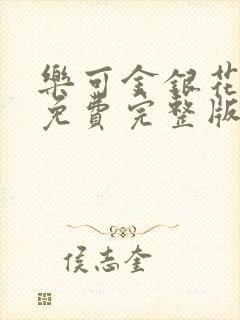 樂可金銀花
免費完整版
侯志奎